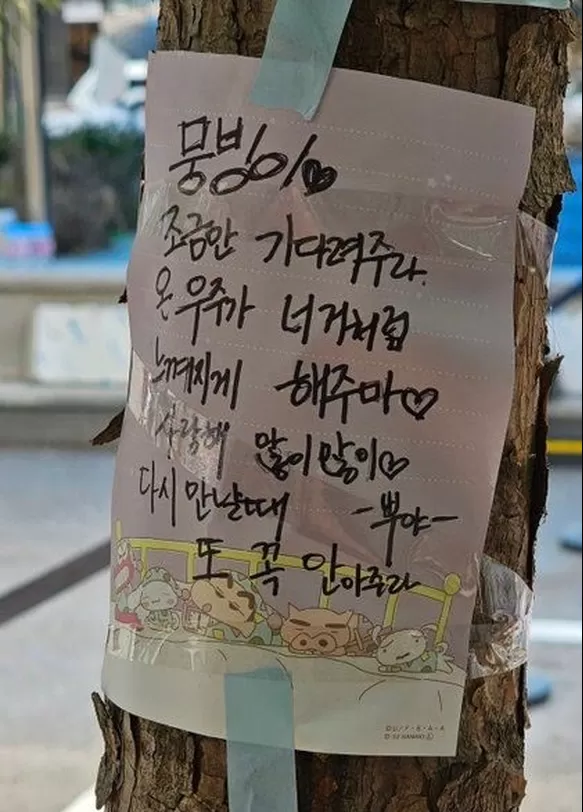 뭉빙이♡
조금만 기다려주라.
온 우주가 너 거처럼
느껴지게 해주마♡
사랑해 많이많이♡
다시 만날때 -뿌야-
또 꼭 안아주라